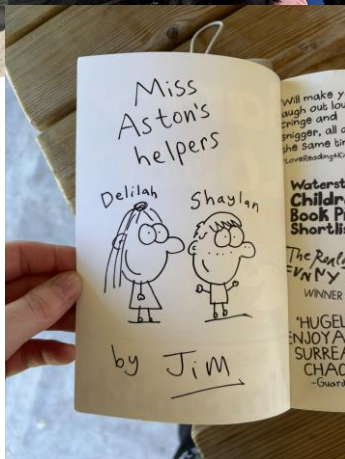 Miss
Aston's
helpers
Delilah Shaylan
by Jim
Will make y
augh out lou
cringe and
snigger, all a
the same tim
Waterst
Childre
Book Pr
Shortli
The Roald
FUNNY
WINNER
"HUGEL
ENJOYA
SURREA
CHAO
-Guard